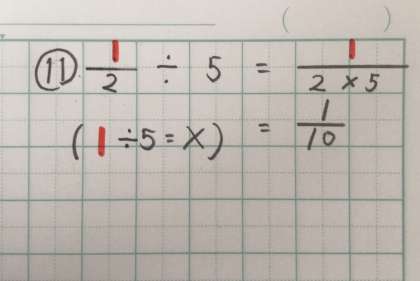 ⑪ 1/2 ÷ 5 = 1/(2×5)
(1÷5=×) = 1/10